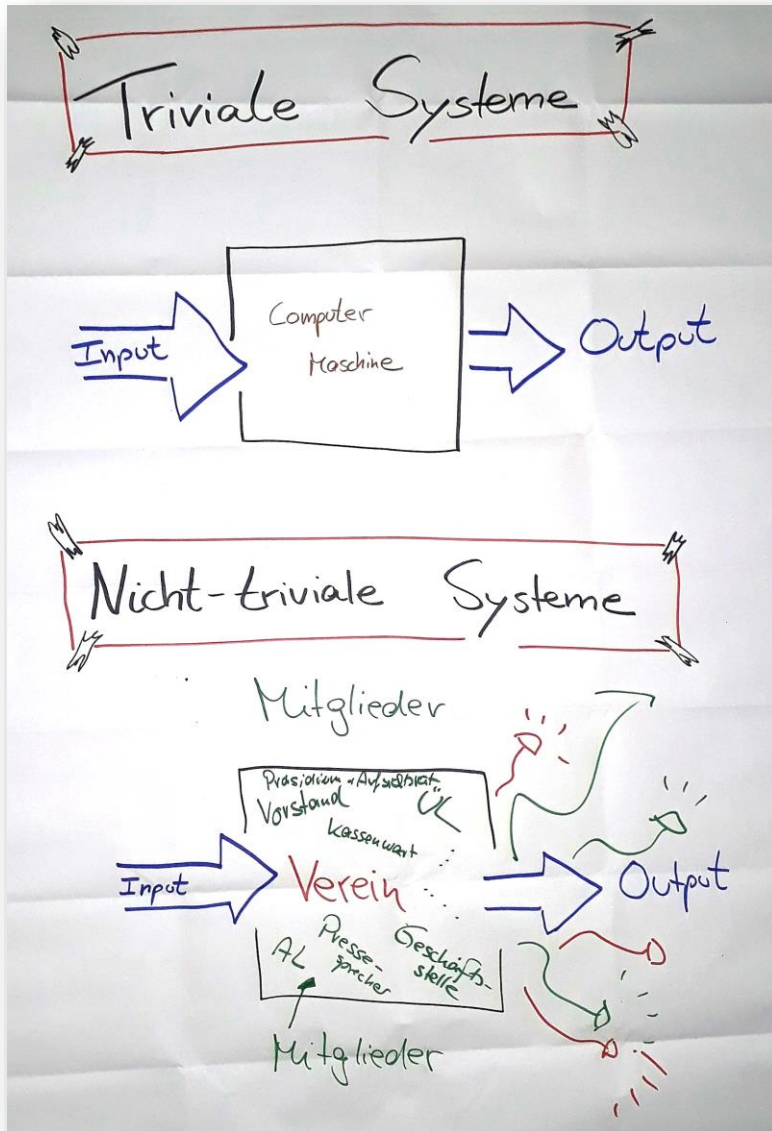 Triviale Systeme
Computer
Maschine
Input
Output
Nicht-triviale Systeme
Mitglieder
Präsidium + Aufsichtsrat
Vorstand
ÜL
Kassenwart
Input
Verein
Output
AL
Presse-
sprecher
Geschäfts-
stelle
Mitglieder